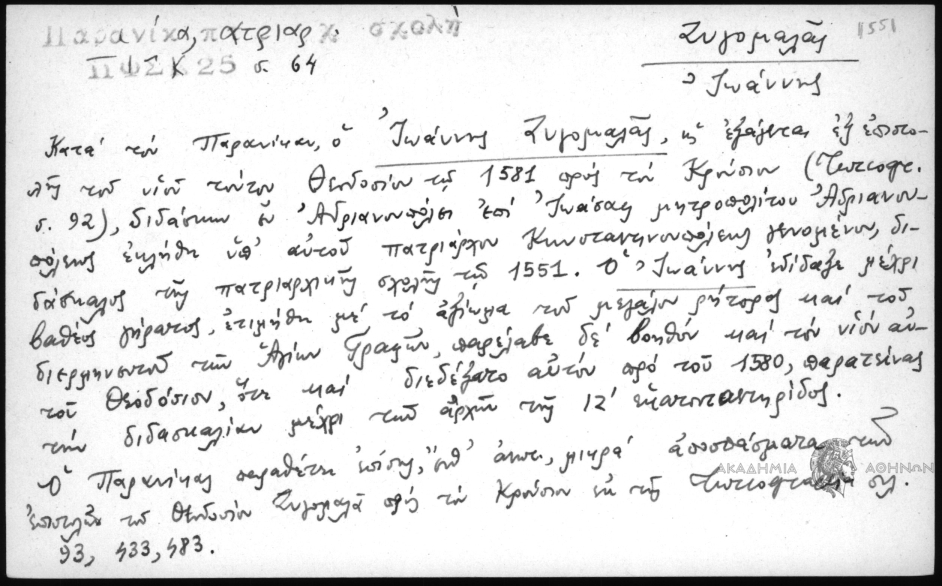 Παρανίκα, πατριαρχ. σχολὴ
ΠΨΣΚ 25 σ. 64
1551
Ζυγομαλᾶς
Ἰωάννης
Κατὰ τὸν Παρανίκαν, ὁ Ἰωάννης Ζυγομαλᾶς, ὡς ἐξάγεται ἐξ ἐπιστο-
λῆς τοῦ υἱοῦ τούτου Θεοδοσίου τῷ 1581 πρὸς τὸν Κρούσιον (Τυρκογρ.
σ. 92), διδάσκων ἐν Ἀδριανουπόλει ἐπὶ Ἰωάσαφ μητροπολίτου Ἀδριανου-
πόλεως ἐκλήθη ὑπ' αὐτοῦ πατριάρχου Κωνσταντινουπόλεως γενομένου, δι-
δάσκαλος τῆς πατριαρχικῆς σχολῆς τῷ 1551. Ὁ Ἰωάννης ἐδίδαξε μέχρι
βαθέος γήρατος, ἐτιμήθη μὲ τὸ ἀξίωμα τοῦ μεγάλου ῥήτορος καὶ τοῦ
διερμηνευτοῦ τῶν Ἁγίων Γραφῶν, παρέλαβε δὲ βοηθὸν καὶ τὸν υἱὸν αὐ-
τοῦ Θεοδόσιον, ὅστις καὶ διεδέξατο αὐτὸν πρὸ τοῦ 1580, παρατείνας
τὴν διδασκαλίαν μέχρι τῶν ἀρχῶν τῆς 17' ἑκατονταετηρίδος.
Ὁ Παρανίκας παραθέτει ἐπίσης, ἔνθ' ἀνωτ., μικρὰ ἀποσπάσματα τῶν
ἐπιστολῶν τοῦ Θεοδοσίου Ζυγομαλᾶ πρὸς τὸν Κρούσιον ἐκ τῆς σελ.
93, 433, 483.
ΑΚΑΔΗΜΙΑ ΑΘΗΝΩΝ